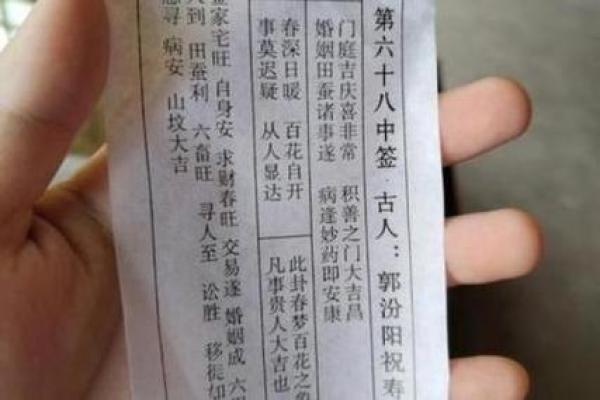 第六十八中签 古人：郭汾阳祝寿
门庭吉庆喜非常 积善之门大吉昌
婚姻田蚕诸事遂 病逢妙药即安康
春深日暖 百花自开
事莫迟疑 从人显达
此卦春梦百花之象
凡事贵人大吉也
家宅旺 自身安 求财春旺 交易遂 婚姻成 六
到 田蚕利 六畜旺 寻人至 讼胜 移徙
寻 病安 山坟大吉